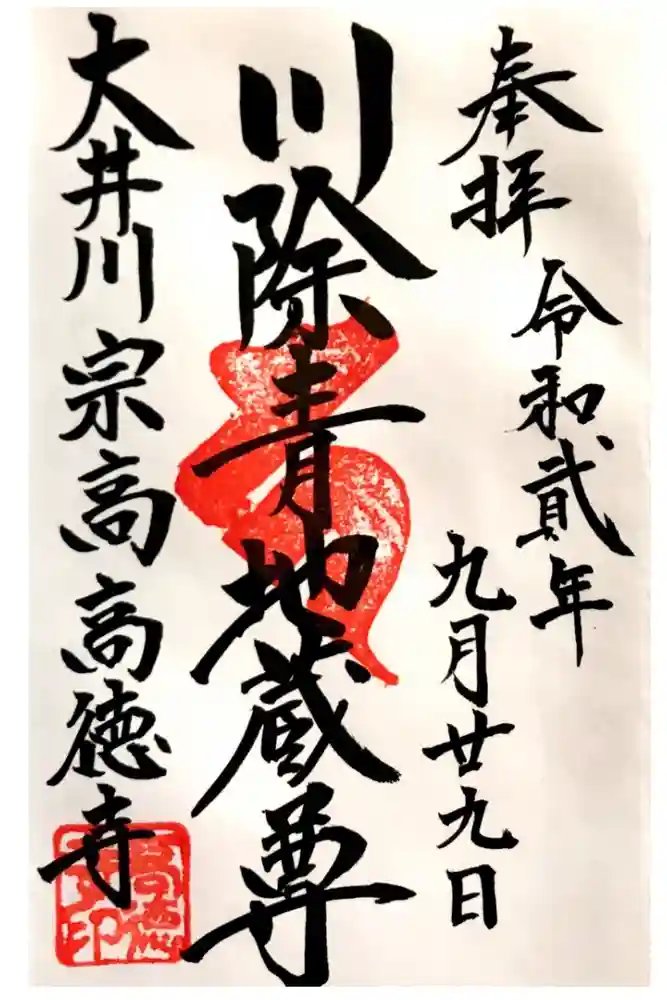 奉拝
令和貮年
九月廿九日
川除青地蔵尊
大井川 宗高 高徳寺